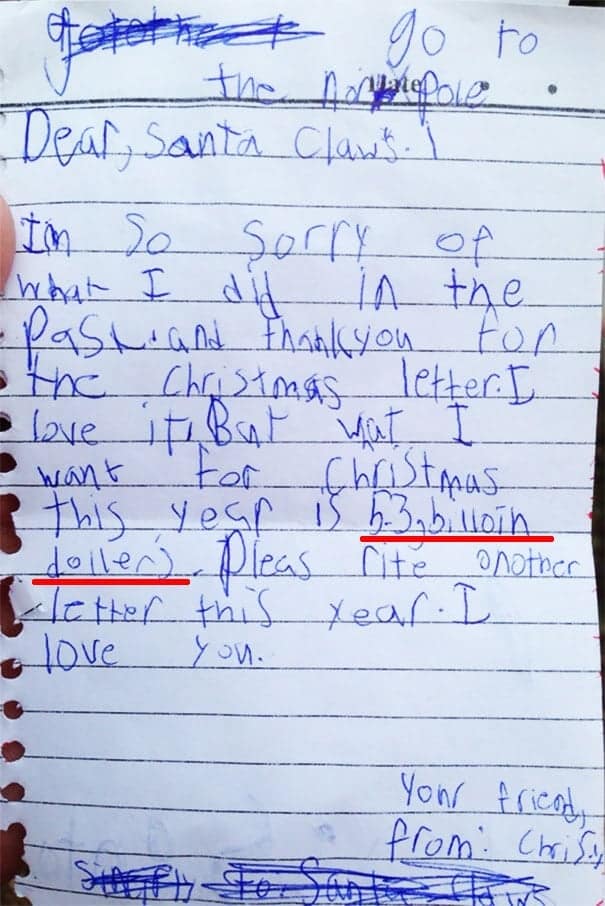 go to
the north pole
Date
Dear, Santa Claws.
Im So Sorry of
what I did in the
Past. and thankyou for
the Christmas letter. I
love it. But wat I
want for Christmas
this year is 53,billoin
dollers. Pleas rite another
letter this year. I
love you.
Your friend,
from: Chris.